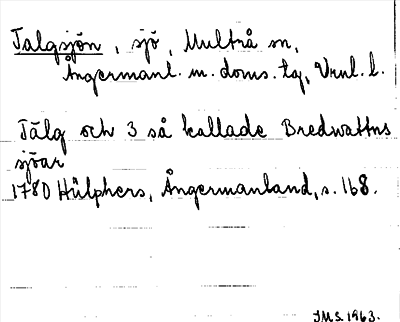 Talgsjön, sjö, Multrå sn,
Ångermanl. m. doms. tg, Vnl. l.
Tälg och 3 så kallade Bredwattns
sjöar
1780 Hülphers, Ångermanland, s. 168.
JMS. 1963.